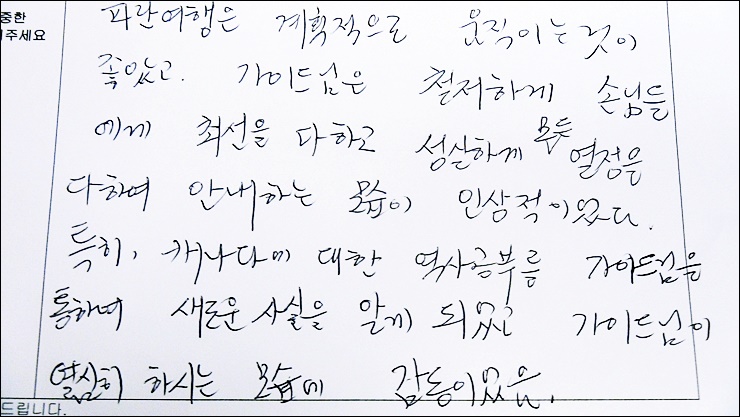 중한
여주세요
파란여행은 계획적으로 움직이는것이
좋았고. 가이드님은 철저하게 손님들
에게 최선을 다하고 성실하게 모든 열정을
다하여 안내하는 모습이 인상적이었다.
특히, 캐나다에 대한 역사공부를 가이드님을
통하여 새로운 사실을 알게 되었고 가이드님이
열심히 하시는 모습에 감동이었음.
드립니다.